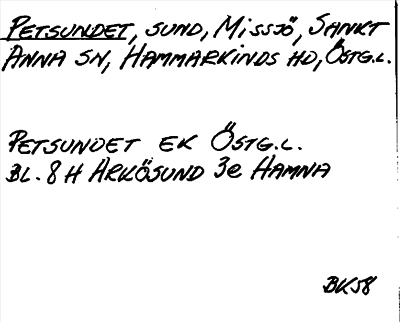 PETSUNDET, SUND, MISSJÖ, SANKT
ANNA SN, HAMMARKINDS HD, ÖSTG.L.
PETSUNDET EK ÖSTG.L.
BL. 8H ARKÖSUND 3e HAMNA
BK58